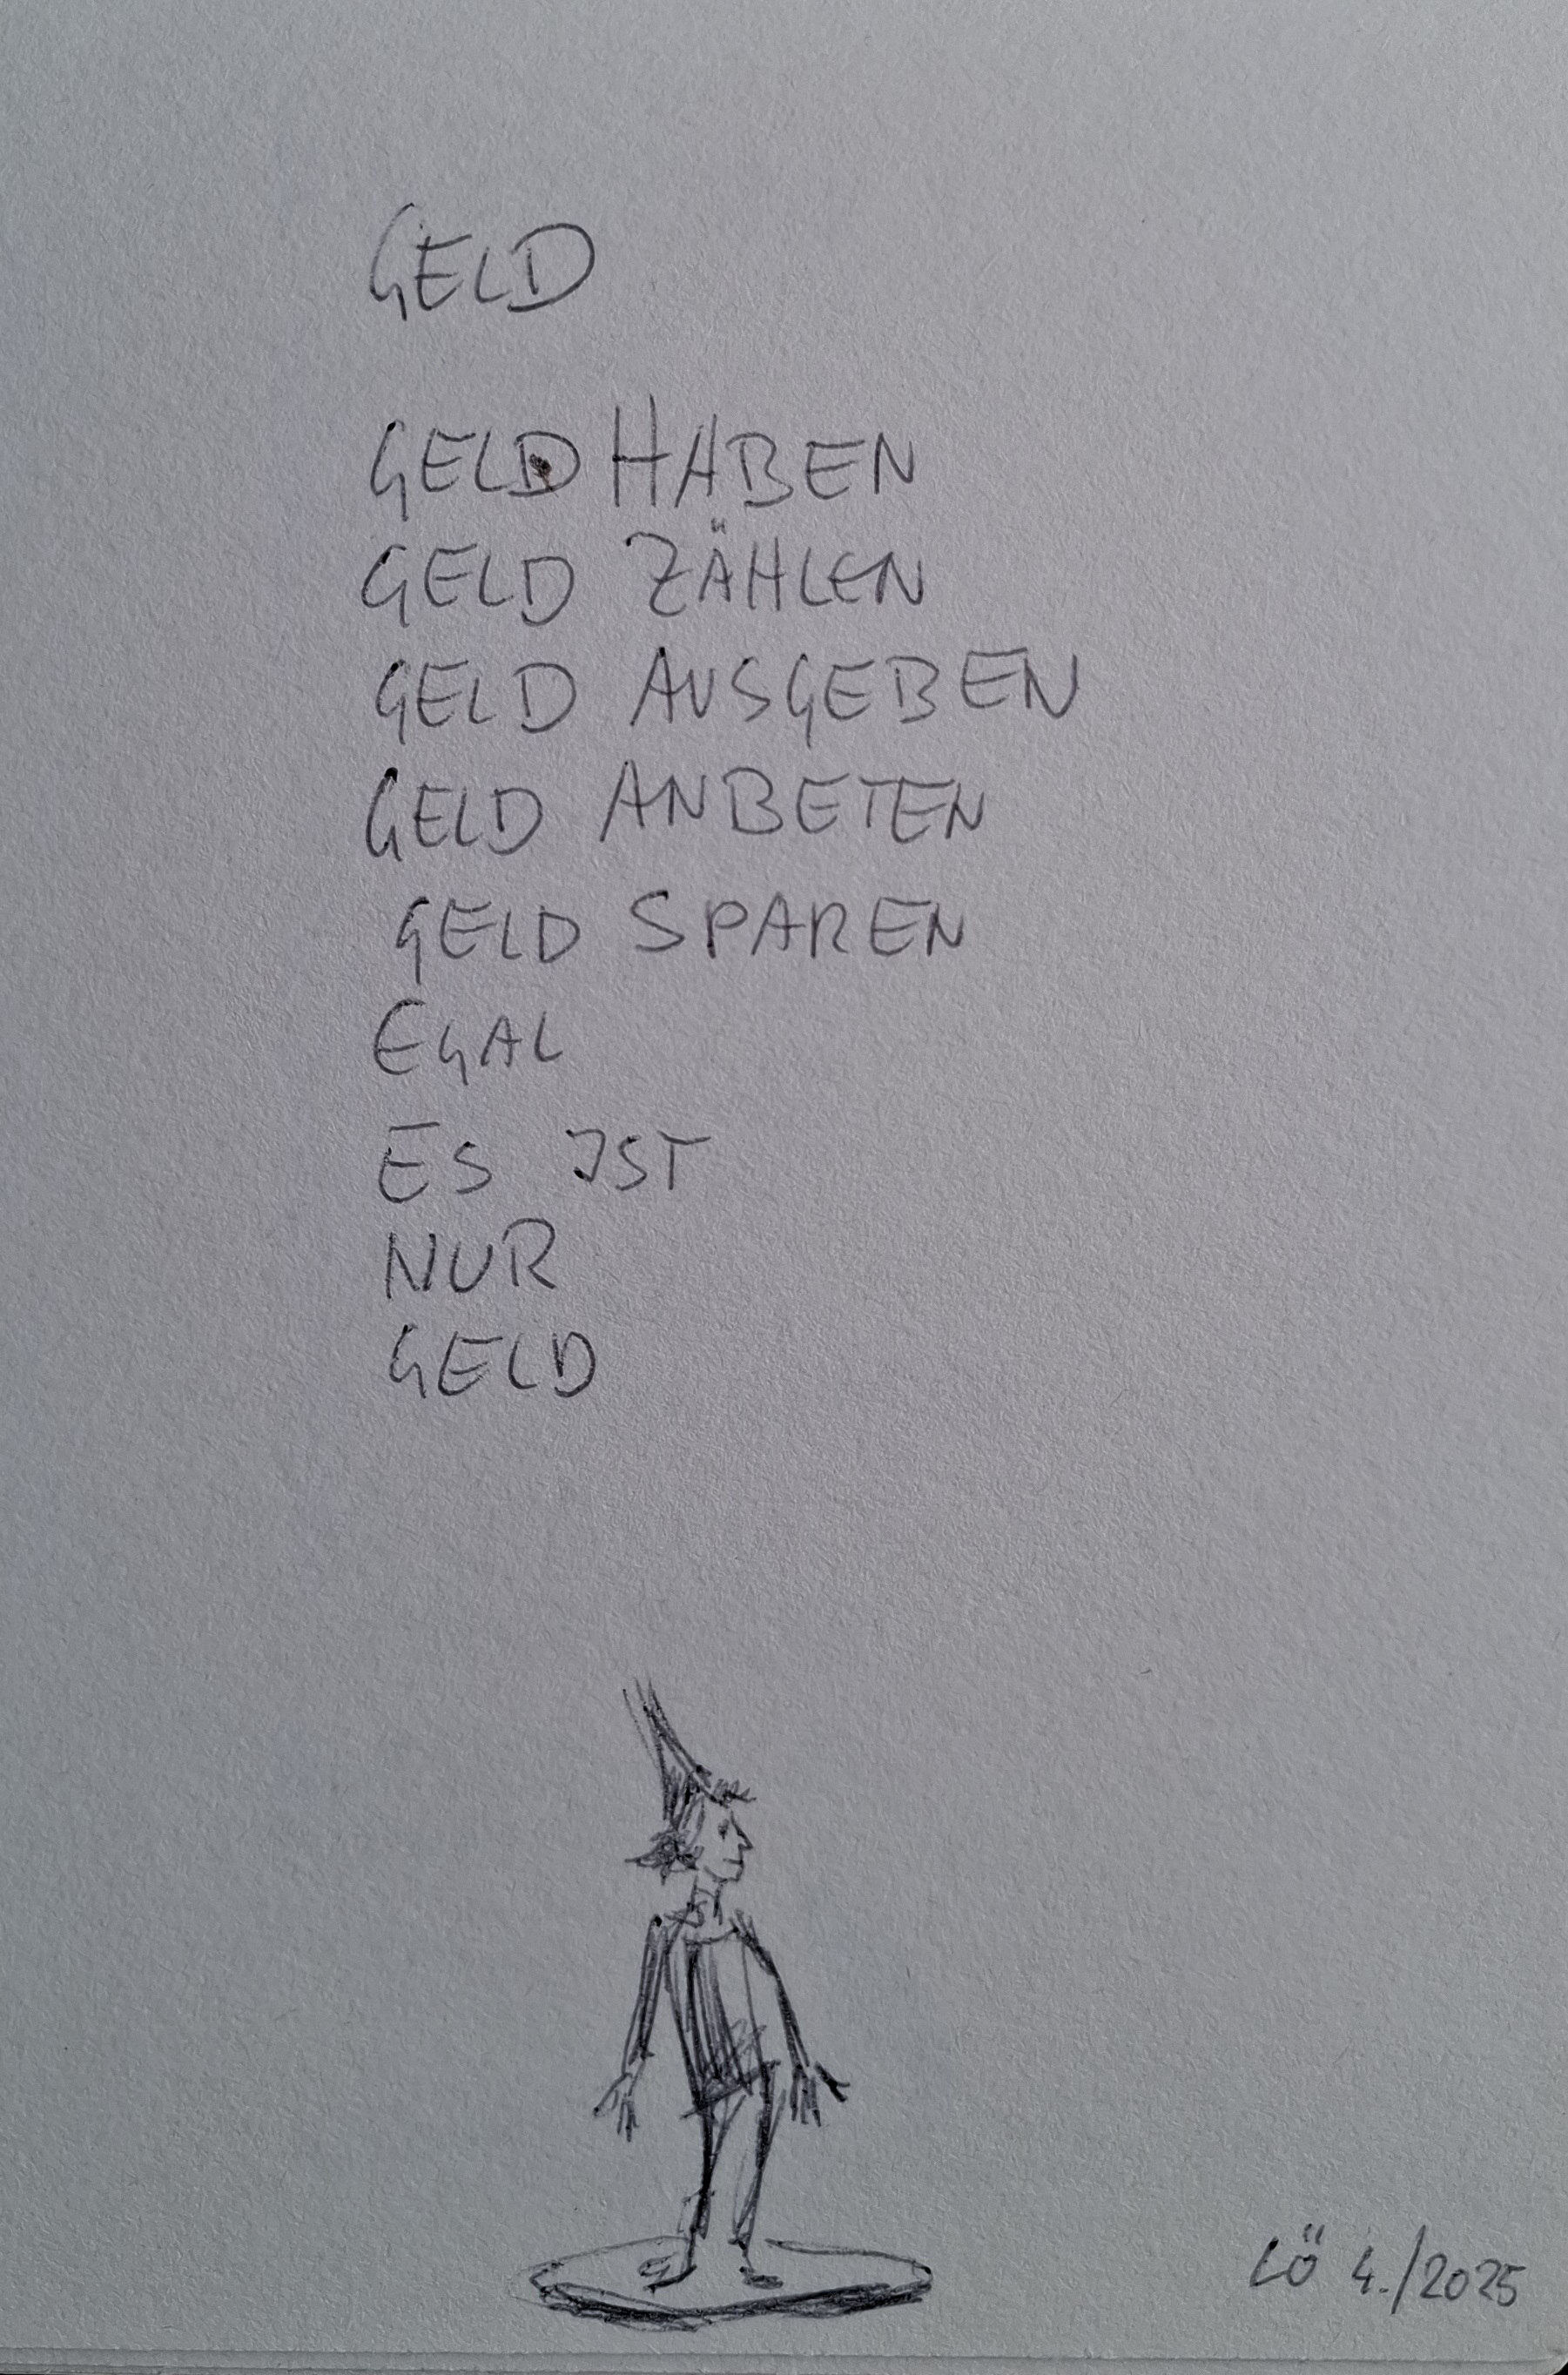 GELD
GELD HABEN
GELD ZÄHLEN
GELD AUSGEBEN
GELD ANBETEN
GELD SPAREN
EGAL
ES IST
NUR
GELD
LÖ 4./2025